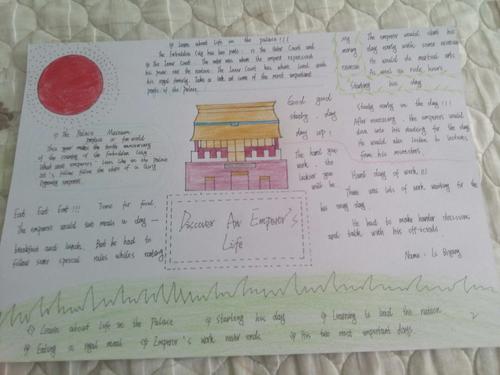 Learn about life in the palace!!!
The Forbidden City has two parts: is the Outer Court and
the Inner Court. The outer was where the emperor
his power over the nation. The Inner Court was where lived with
his royal family. Take a look at some of the most important
parts of the Palace.
My
morning
The emperor would start his
day early with some
He would do martial arts
As well as ride horses.
Starting his day
the Palace Museum
This year makes the anniversary
of the of the Forbidden City
What was emperors' like in the palace
Let's follow the of a Qing
Dynasty emperor.
Good good
study, day
day up!
The hard you
work, the
luckier you
will be
Study early in the day!!!
After exercising, the emperors would
dive into his studying for the day
He would also listen to lectures
from his ministers.
Hard days of work!!!
There was lots of work waiting for the
his every day.
He had to make hard decisions
and talk with his officials
Name: Li
Eat Eat Eat!!! Time for food.
The emperors would two meals a day —
breakfast and lunch. But he had to
follow some special rules whiles eating.
Discover An Emperor's
Life
Learn about life in the Palace
Starting his day
Learning to lead the nation
Eating a royal meal
Emperor's work never ends
His two most important days